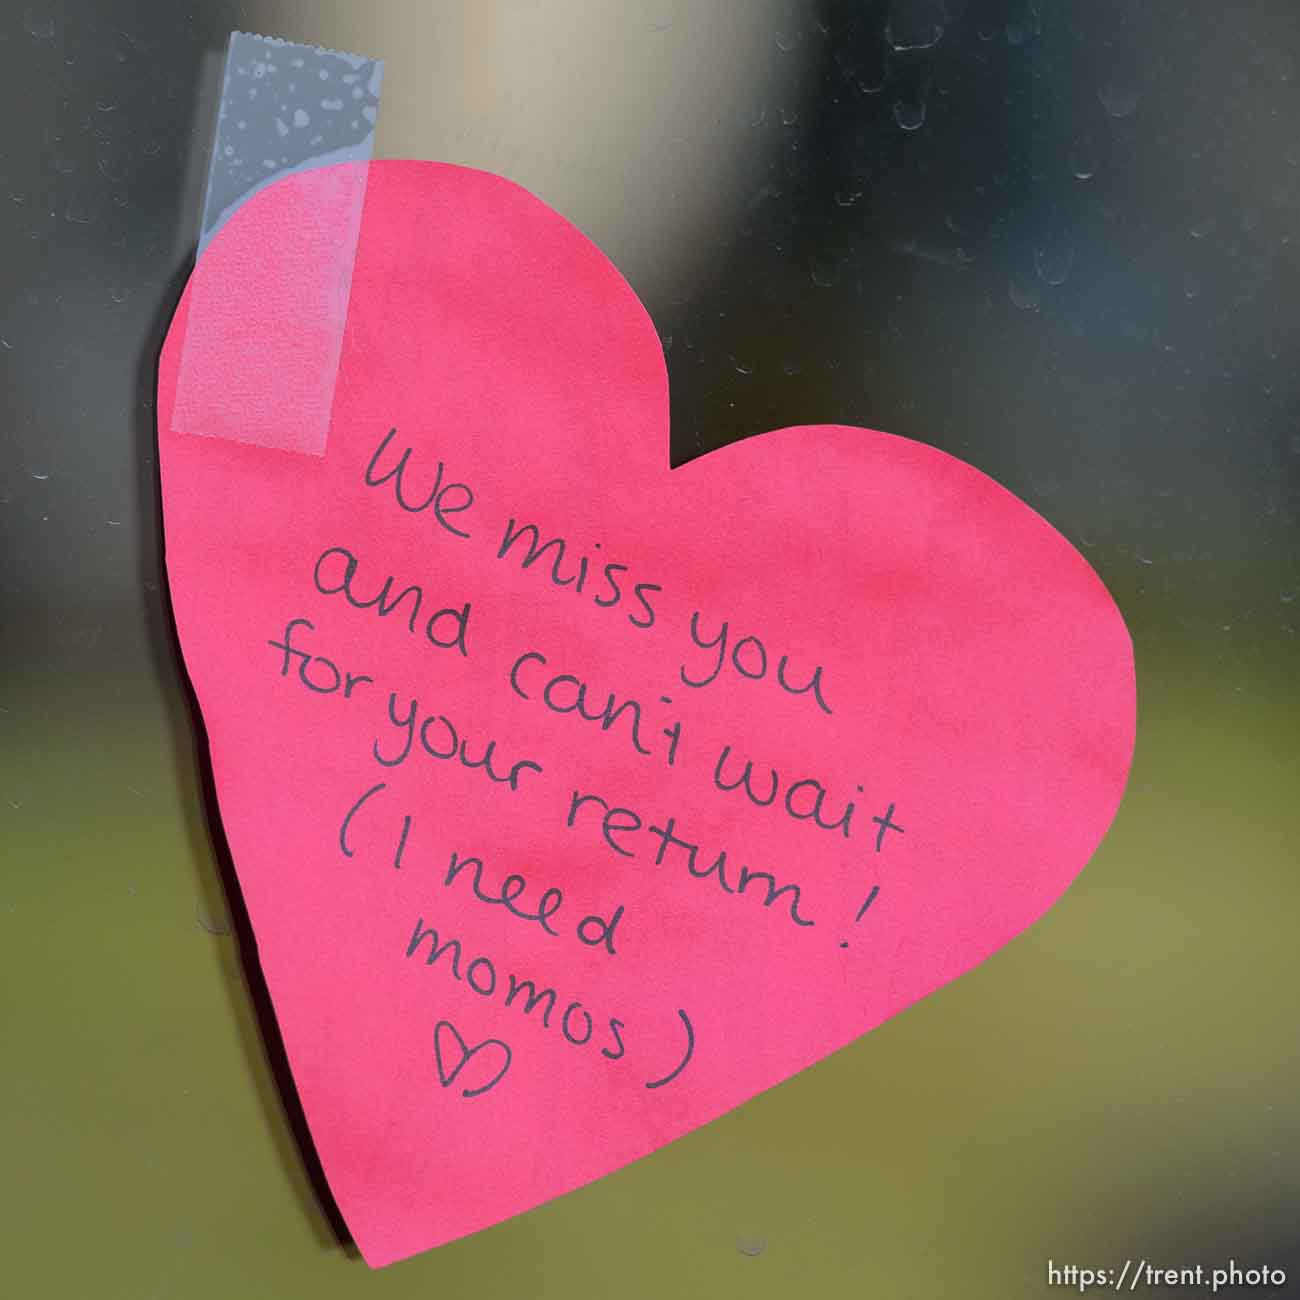 We miss you
and can't wait
for your return!
(I need
momos)
https://trent.photo